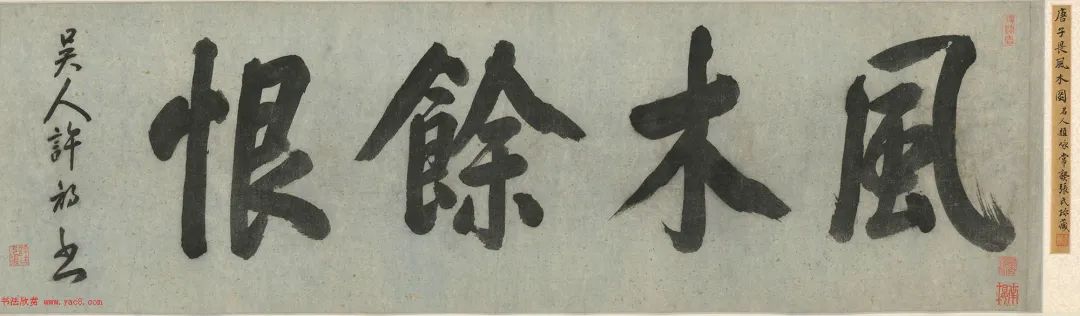 唐子畏風木圖名人題咏常熟張氏珍藏
風木餘恨
吳人許初书
书法欣赏 www.yac8.com